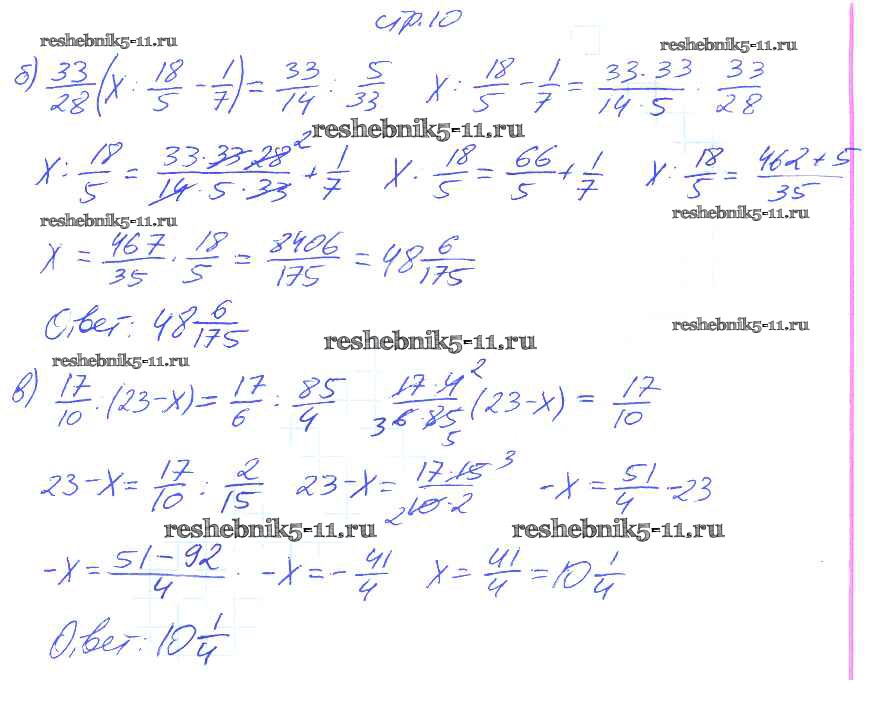 стр.10
reshebnik5-11.ru reshebnik5-11.ru
б) 33/28 (x : 18/5 - 1/7) = 33/14 : 5/33 x : 18/5 - 1/7 = 33·33/14·5 · 33/28
reshebnik5-11.ru
x : 18/5 = 33·33·28 2/14·5·33 + 1/7 x · 18/5 = 66/5 + 1/7 x : 18/5 = 462+5/35
reshebnik5-11.ru reshebnik5-11.ru
x = 467/35 · 18/5 = 8406/175 = 48 6/175
Ответ: 48 6/175
reshebnik5-11.ru reshebnik5-11.ru
reshebnik5-11.ru
в) 17/10 : (23-x) = 17/6 : 85/4 17·4 2/3 6·85 5 (23-x) = 17/10
23-x = 17/10 : 2/15 23-x = 17·15 3/2 10·2 -x = 51/4 -23
reshebnik5-11.ru reshebnik5-11.ru
-x = 51-92/4 · -x = - 41/4 x = 41/4 = 10 1/4
Ответ: 10 1/4